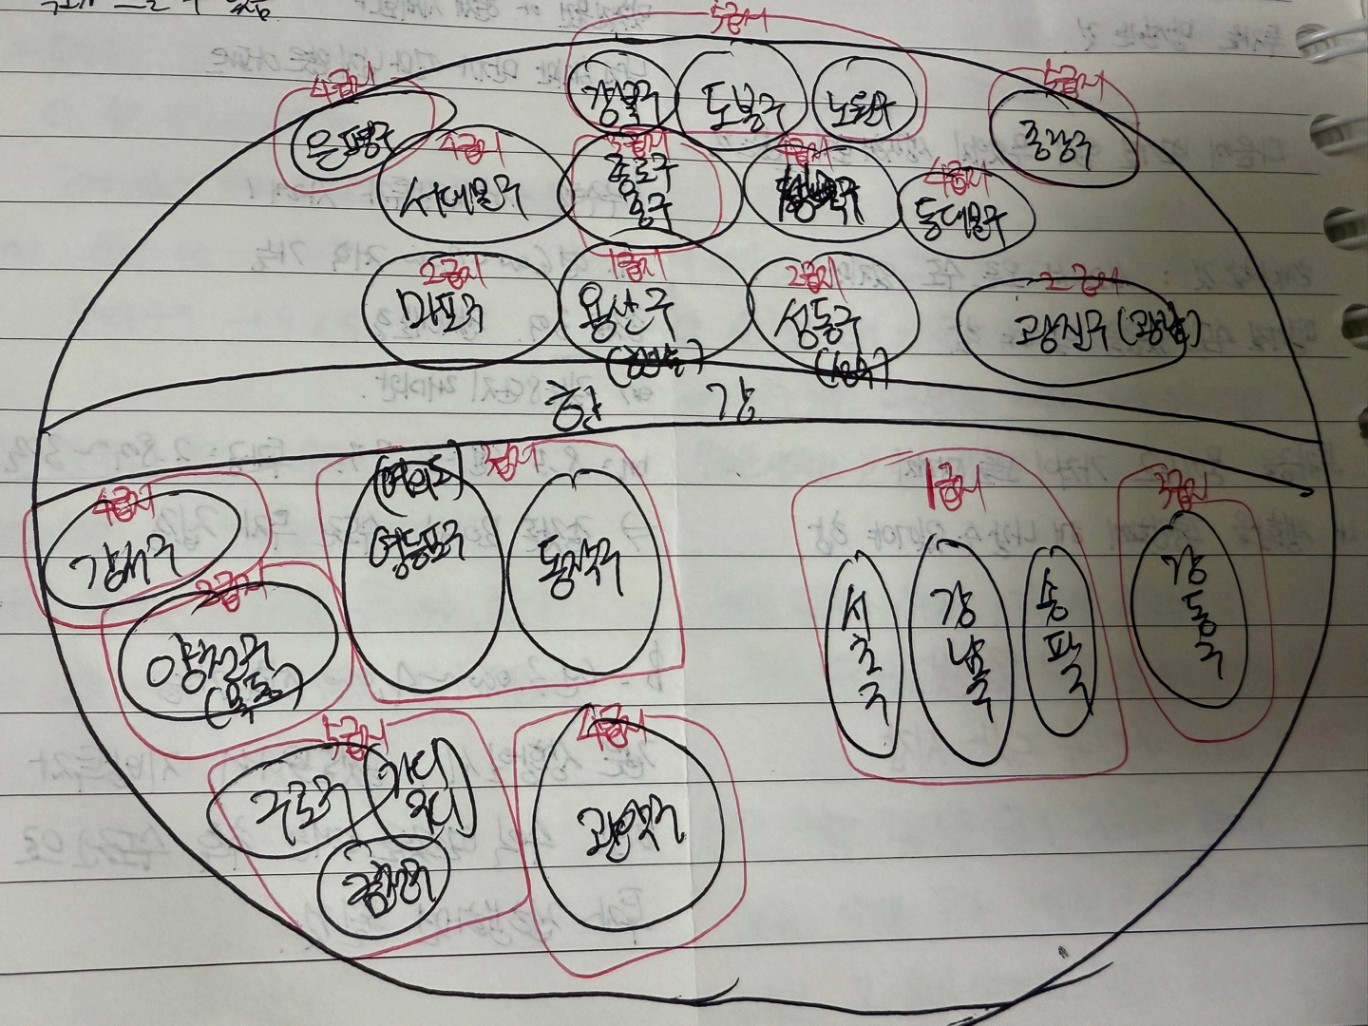 5급지
강북구
도봉구
노원구
4급지
은평구
5급지
중랑구
4급지
서대문구
3급지
종로구
중구
4급지
성북구
4급지
동대문구
2급지
마포구
1급지
용산구
2급지
성동구
(성수)
2급지
광진구(광장)
한 강
4급지
강서구
3급지
(여의도)
영등포구
동작구
1급지
서초구
강남구
송파구
3급지
강동구
양천구
(목동)
5급지
구로구
가디
구디
금천구
4급지
관악구